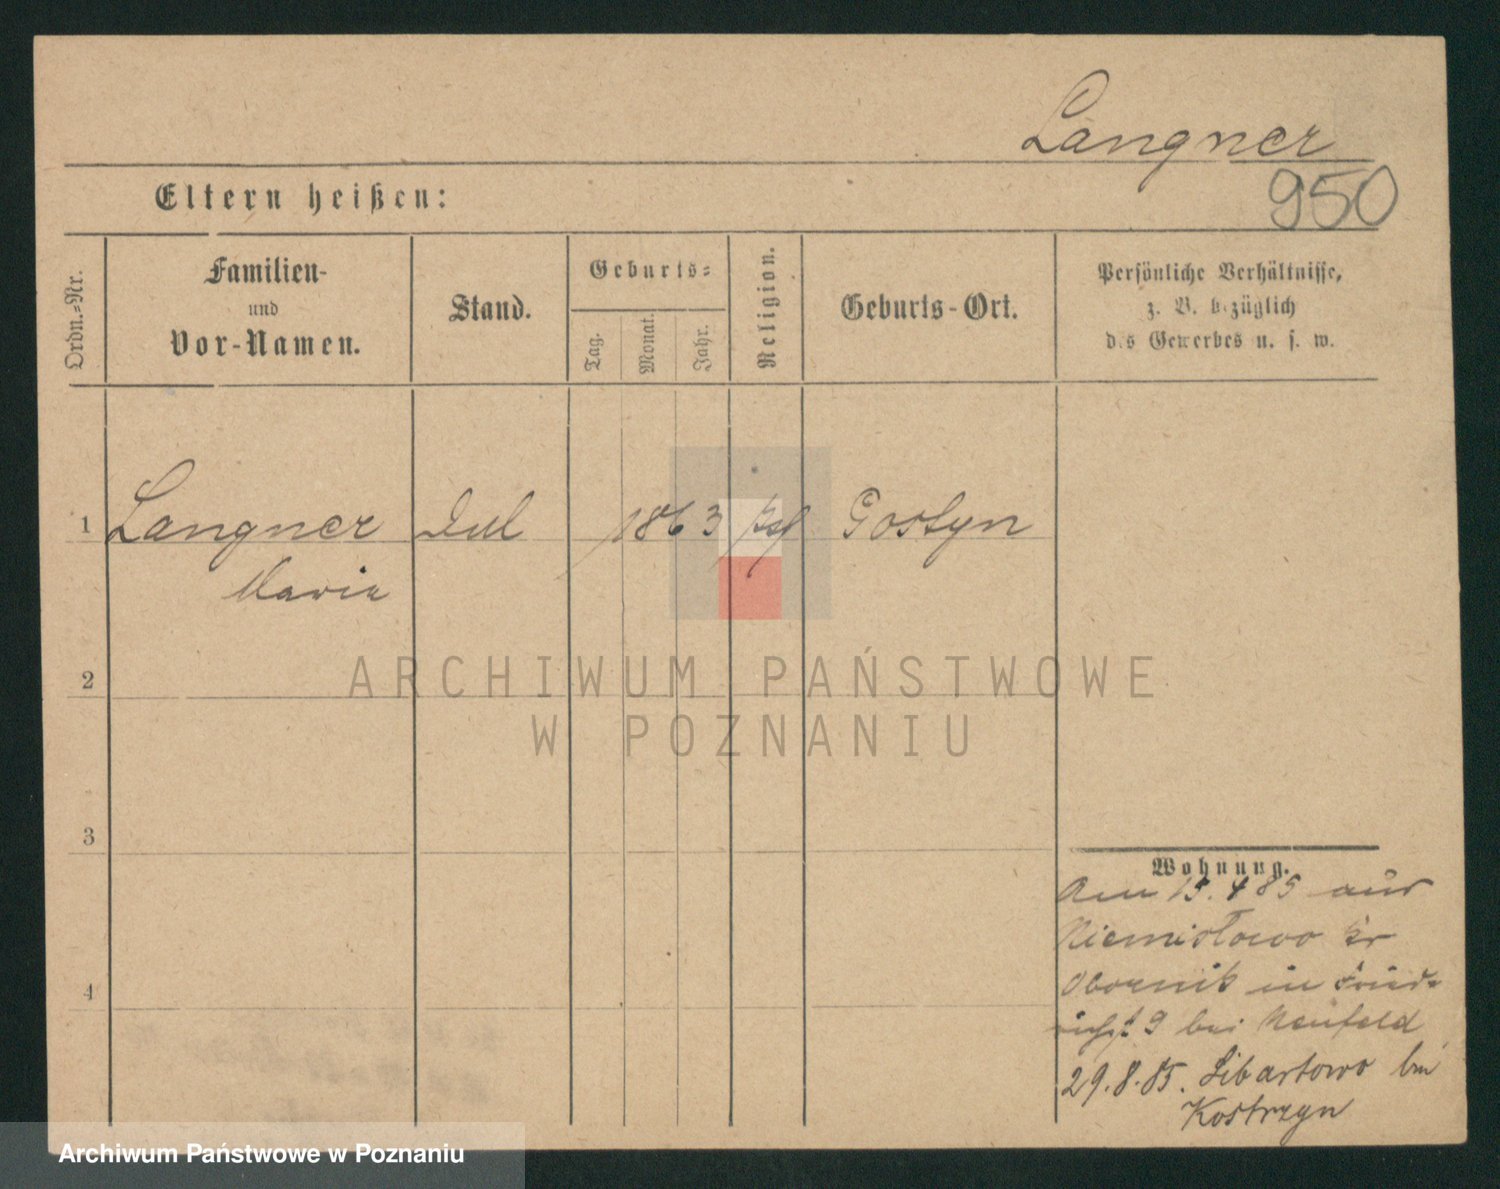 Langner
950
Eltern heißen:
Ordn.-Nr.
Familien-
und
Vor-Namen.
Stand.
Geburts-
Tag.
Monat.
Jahr.
Religion.
Geburts-Ort.
Persönliche Verhältnisse,
z. B. bezüglich
des Gewerbes u. s. w.
1 Langner 1863 Gostyn
Maria
2
3
4
ARCHIWUM PAŃSTWOWE
W POZNANIU
Wohnung.
Am 15. 4 85 aus
Niemisłowo Kr
Obornik in Fried-
9 bei Neufeld
29. 8. 85. Libartowo bei
Kostrzyn
Archiwum Państwowe w Poznaniu